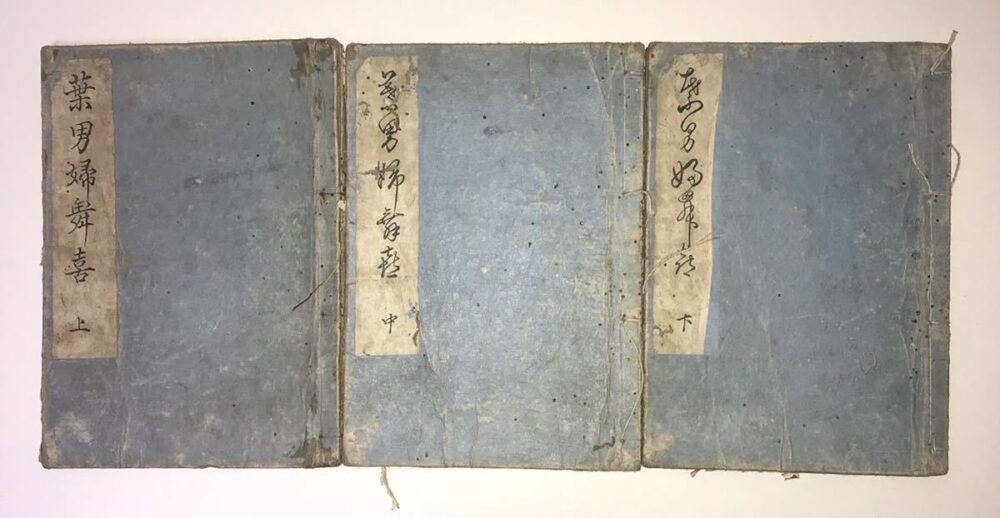 葉男婦舞喜 上
葉男婦舞喜 中
葉男婦舞喜 下